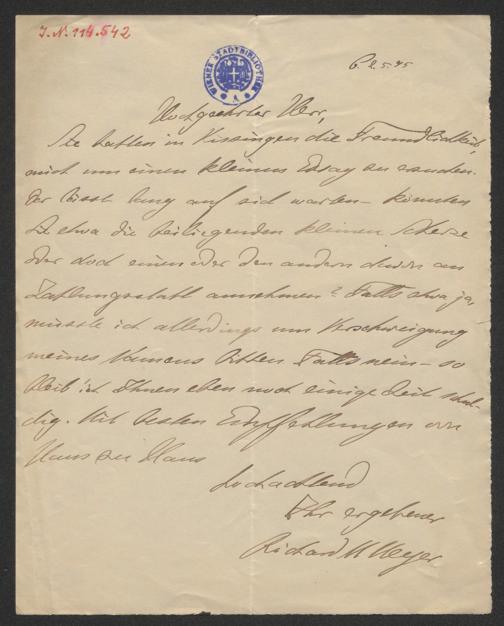 J.N. 114.542
WIENER STADTBIBLIOTHEK
B. 2.5.95
Hochgeehrter Herr,
Sie hatten in Kissingen die Freundlichkeit,
mich um einen kleinen Essay zu
Der lässt lang auf sich warten – könnten
Sie etwa die beiliegenden kleinen Scherze
oder doch einen oder den andern davon an
Zahlungsstatt annehmen? Falls etwa ja,
müsste ich allerdings um Verschweigung
meines Namens bitten. Falls nein – so
bleib ich Ihnen eben noch einige Zeit schul-
dig. Mit besten Empfehlungen von
Haus zu Haus
hochachtend
Ihr ergebener
Richard M Meyer